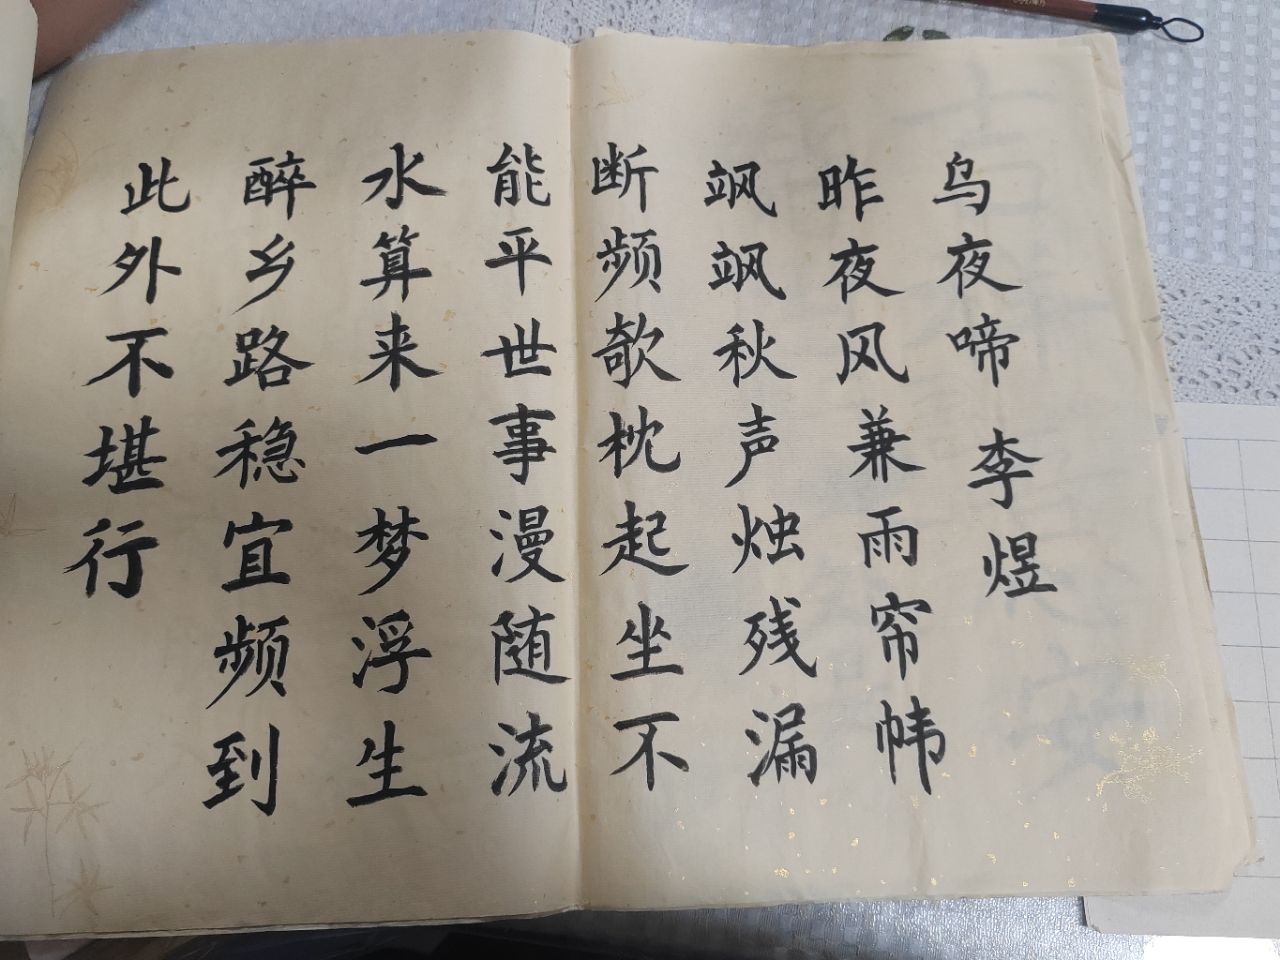 乌夜啼李煜
昨夜风兼雨帘帏
飒飒秋声烛残漏
断频欹枕起坐不
能平世事漫随流
水算来一梦浮生
醉乡路稳宜频到
此外不堪行